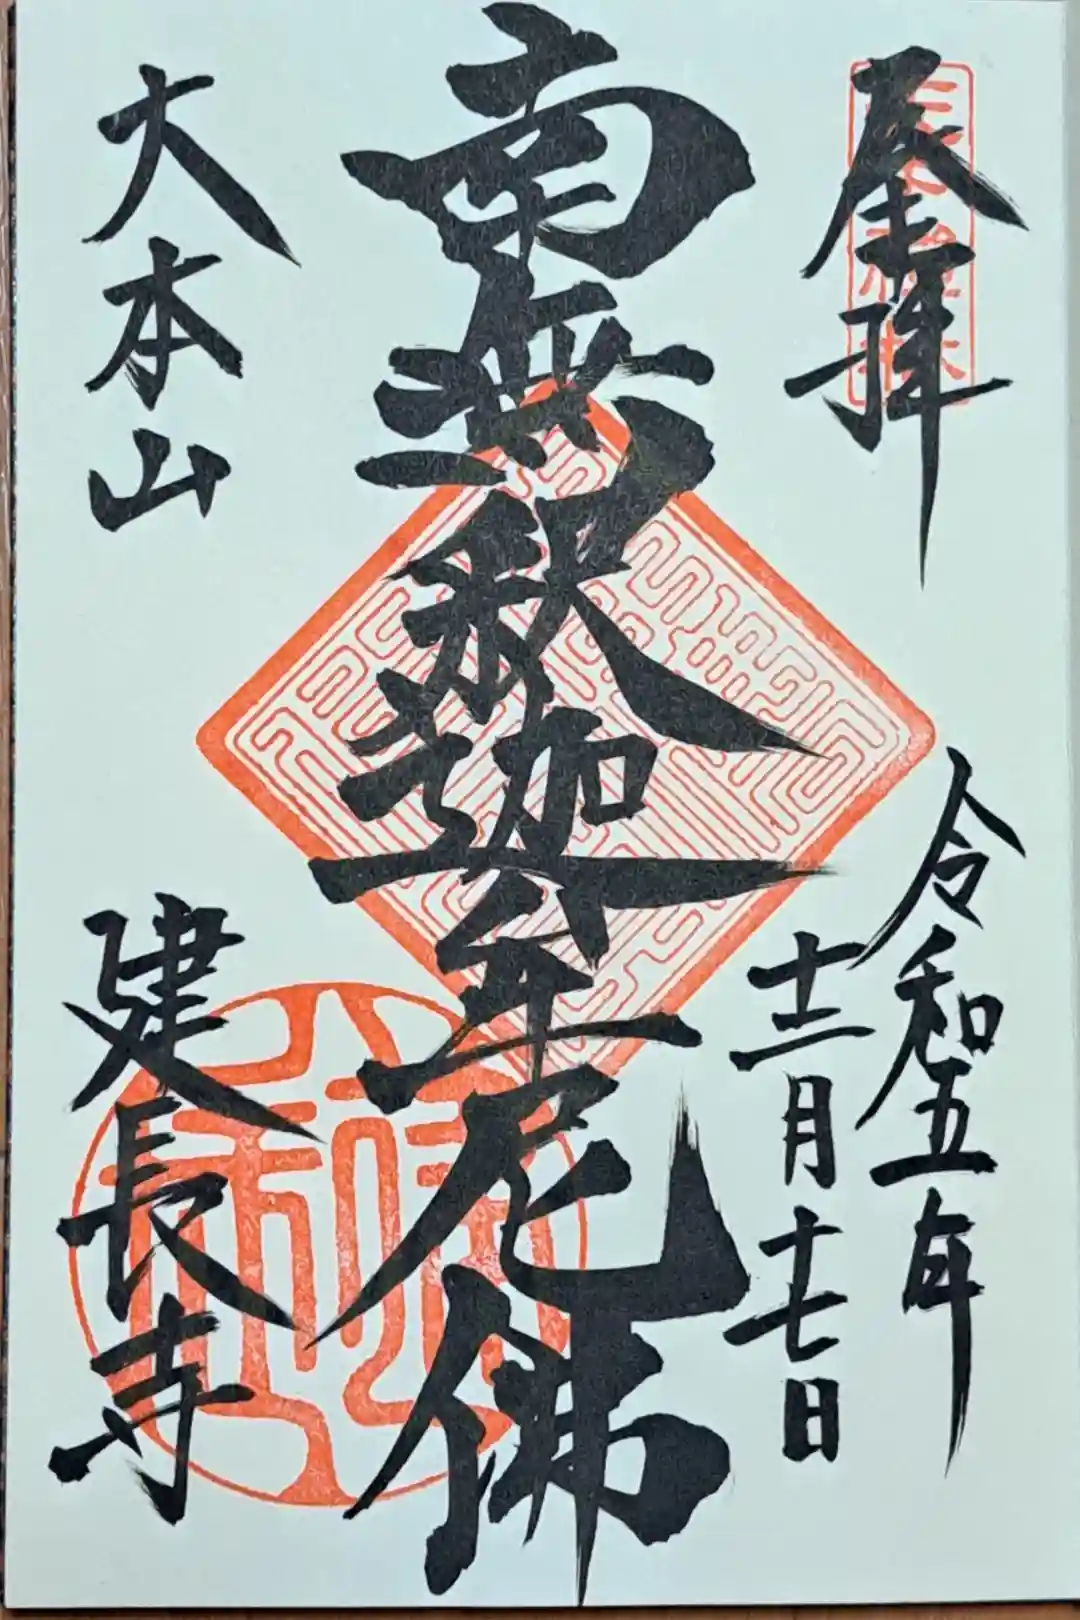 奉拝
令和五年
十二月十七日
南無釈迦牟尼佛
大本山
建長寺